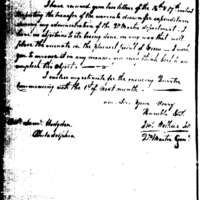 I have received your two letters of the 16th & 17th instant
respecting the transfer of the warrants drawn for expenditures
during my administration of the Qr Master department. I
have no objections to its being done in any way that will
place the accounts in the plainest point of view. I wish
you to answer it in any manner you may think best to ac-
complish the object.
I enclose my estimate for the ensuing Quarter
commencing with the 1st of next month.
am Sir Your
Humble Svt.
Jno Wilkins Jr
Qr Master Genl
Saml Hodgdon
Philadelphia